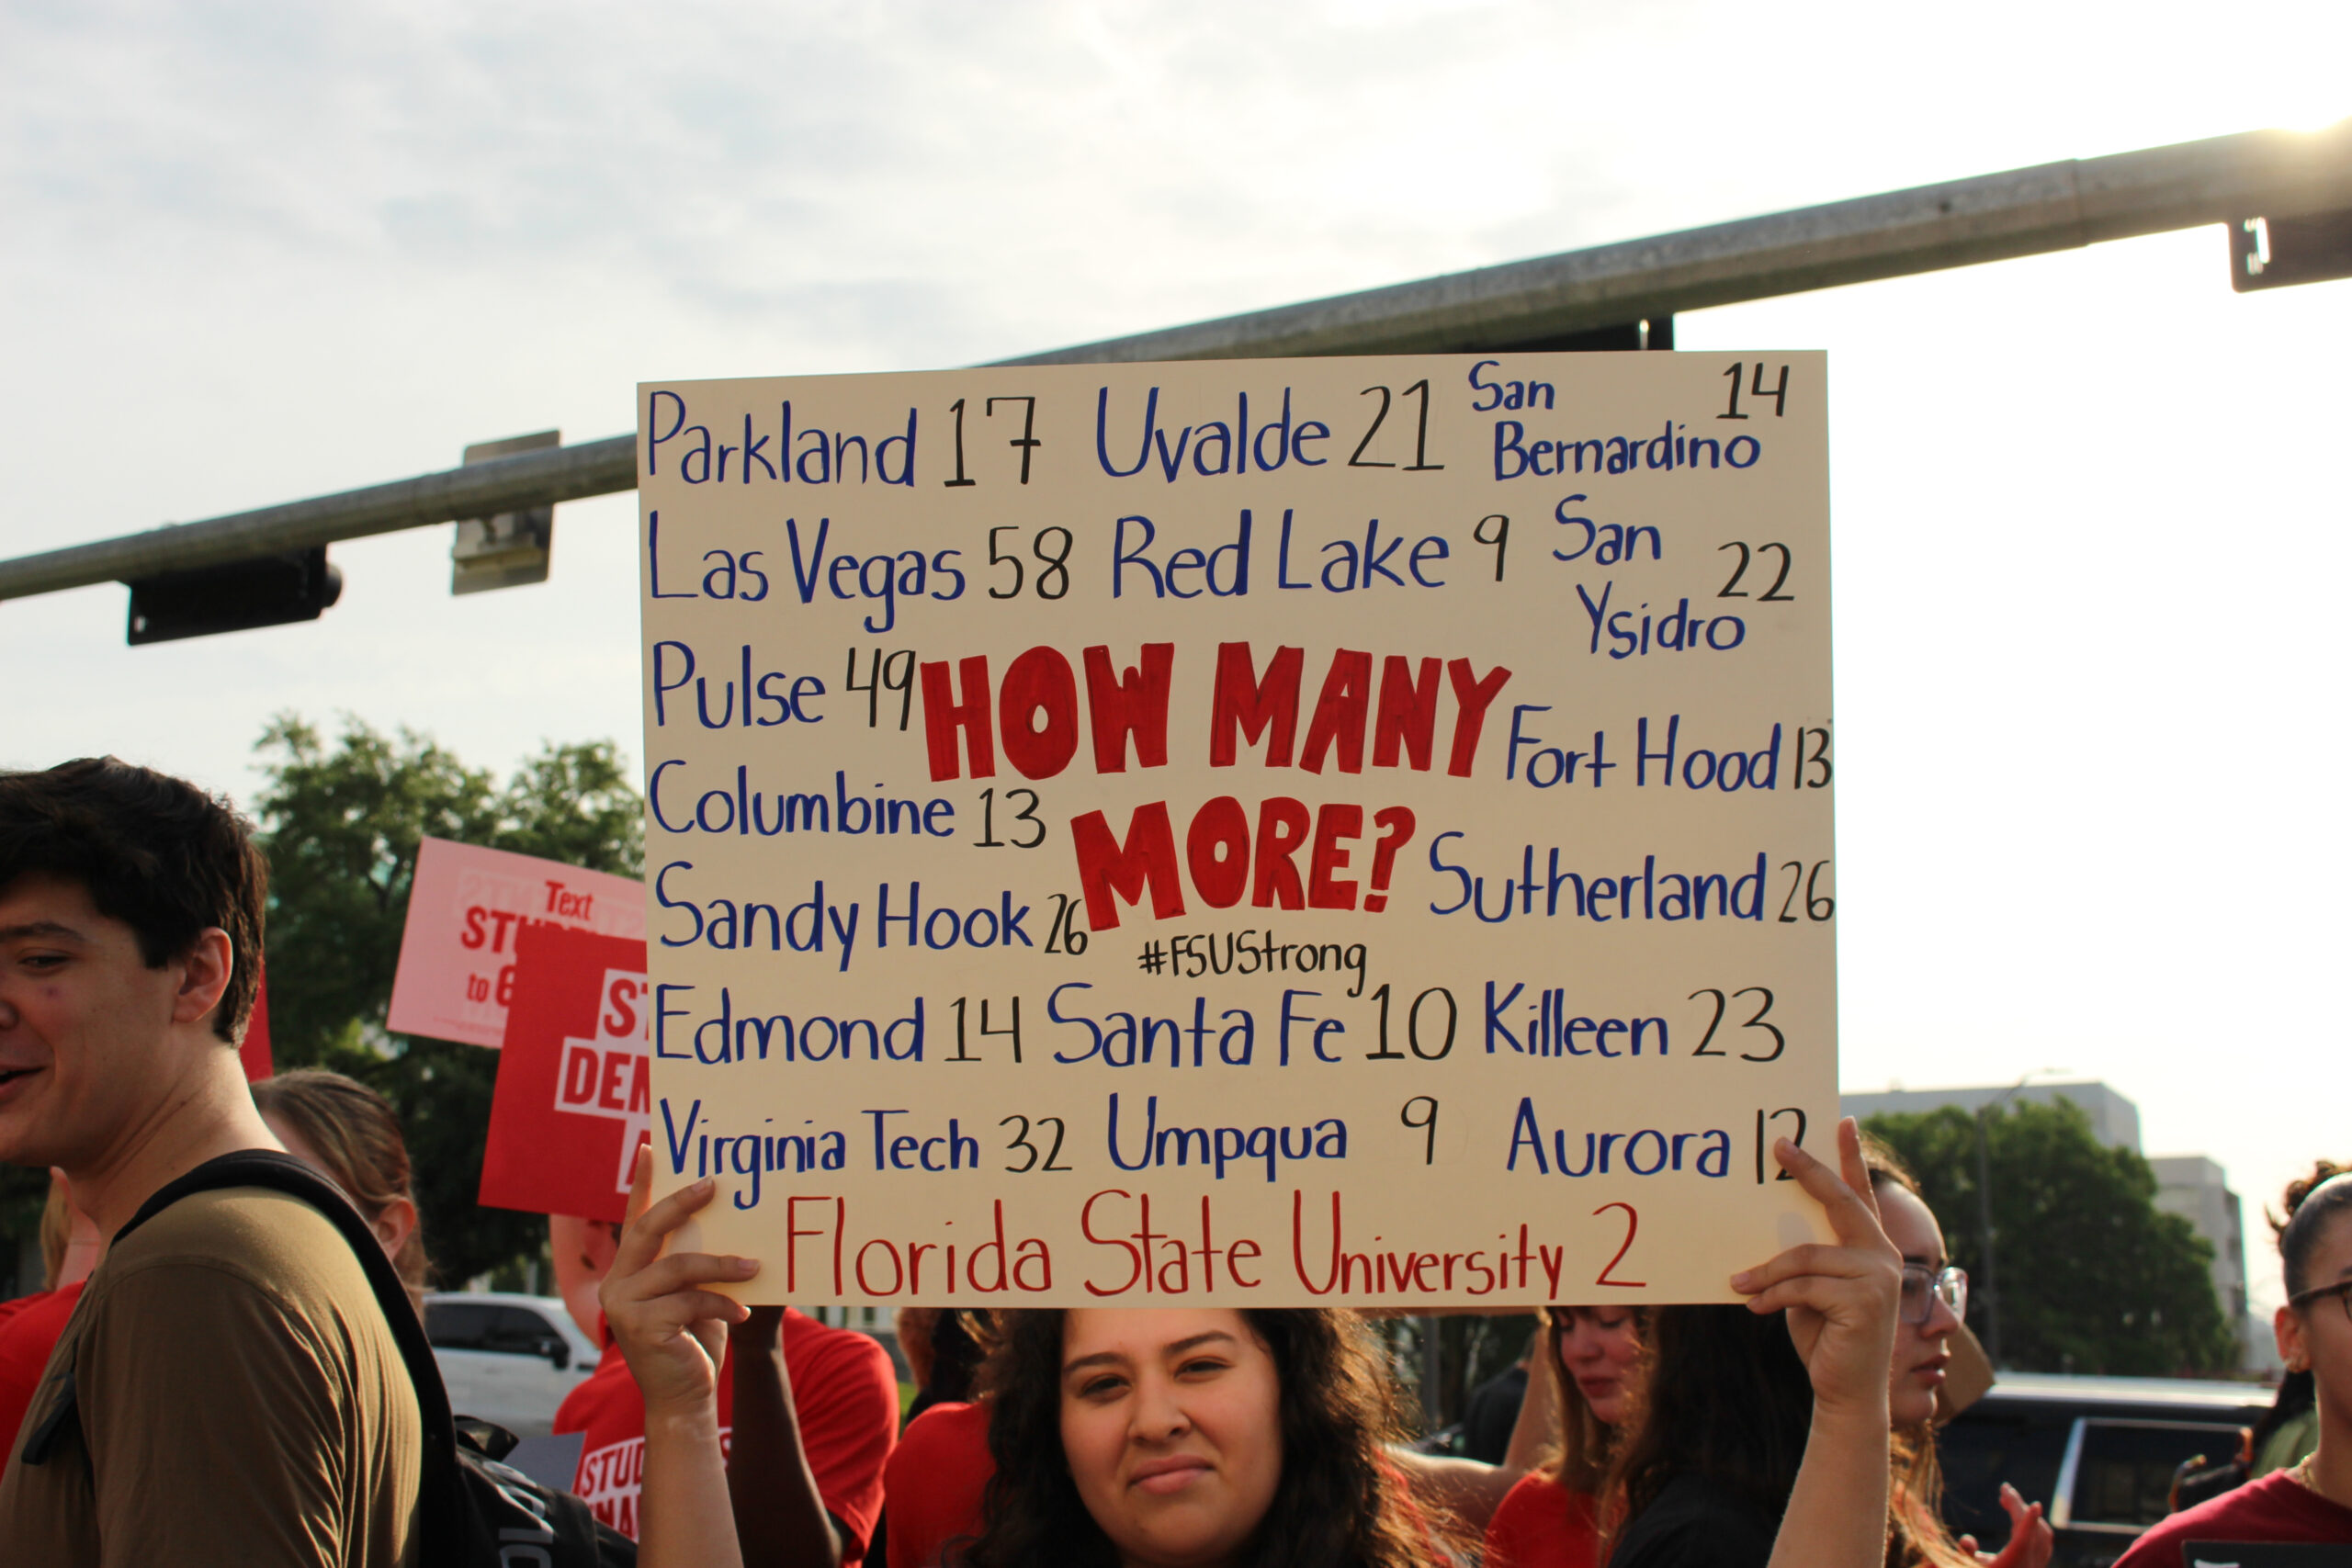 Parkland 17 Uvalde 21 San Bernardino 14
Las Vegas 58 Red Lake 9 San Ysidro 22
Pulse 49 HOW MANY Fort Hood 13
Columbine 13 MORE? Sutherland 26
Sandy Hook 26 #FSUStrong
Edmond 14 Santa Fe 10 Killeen 23
Virginia Tech 32 Umpqua 9 Aurora 12
Florida State University 2
Text
to